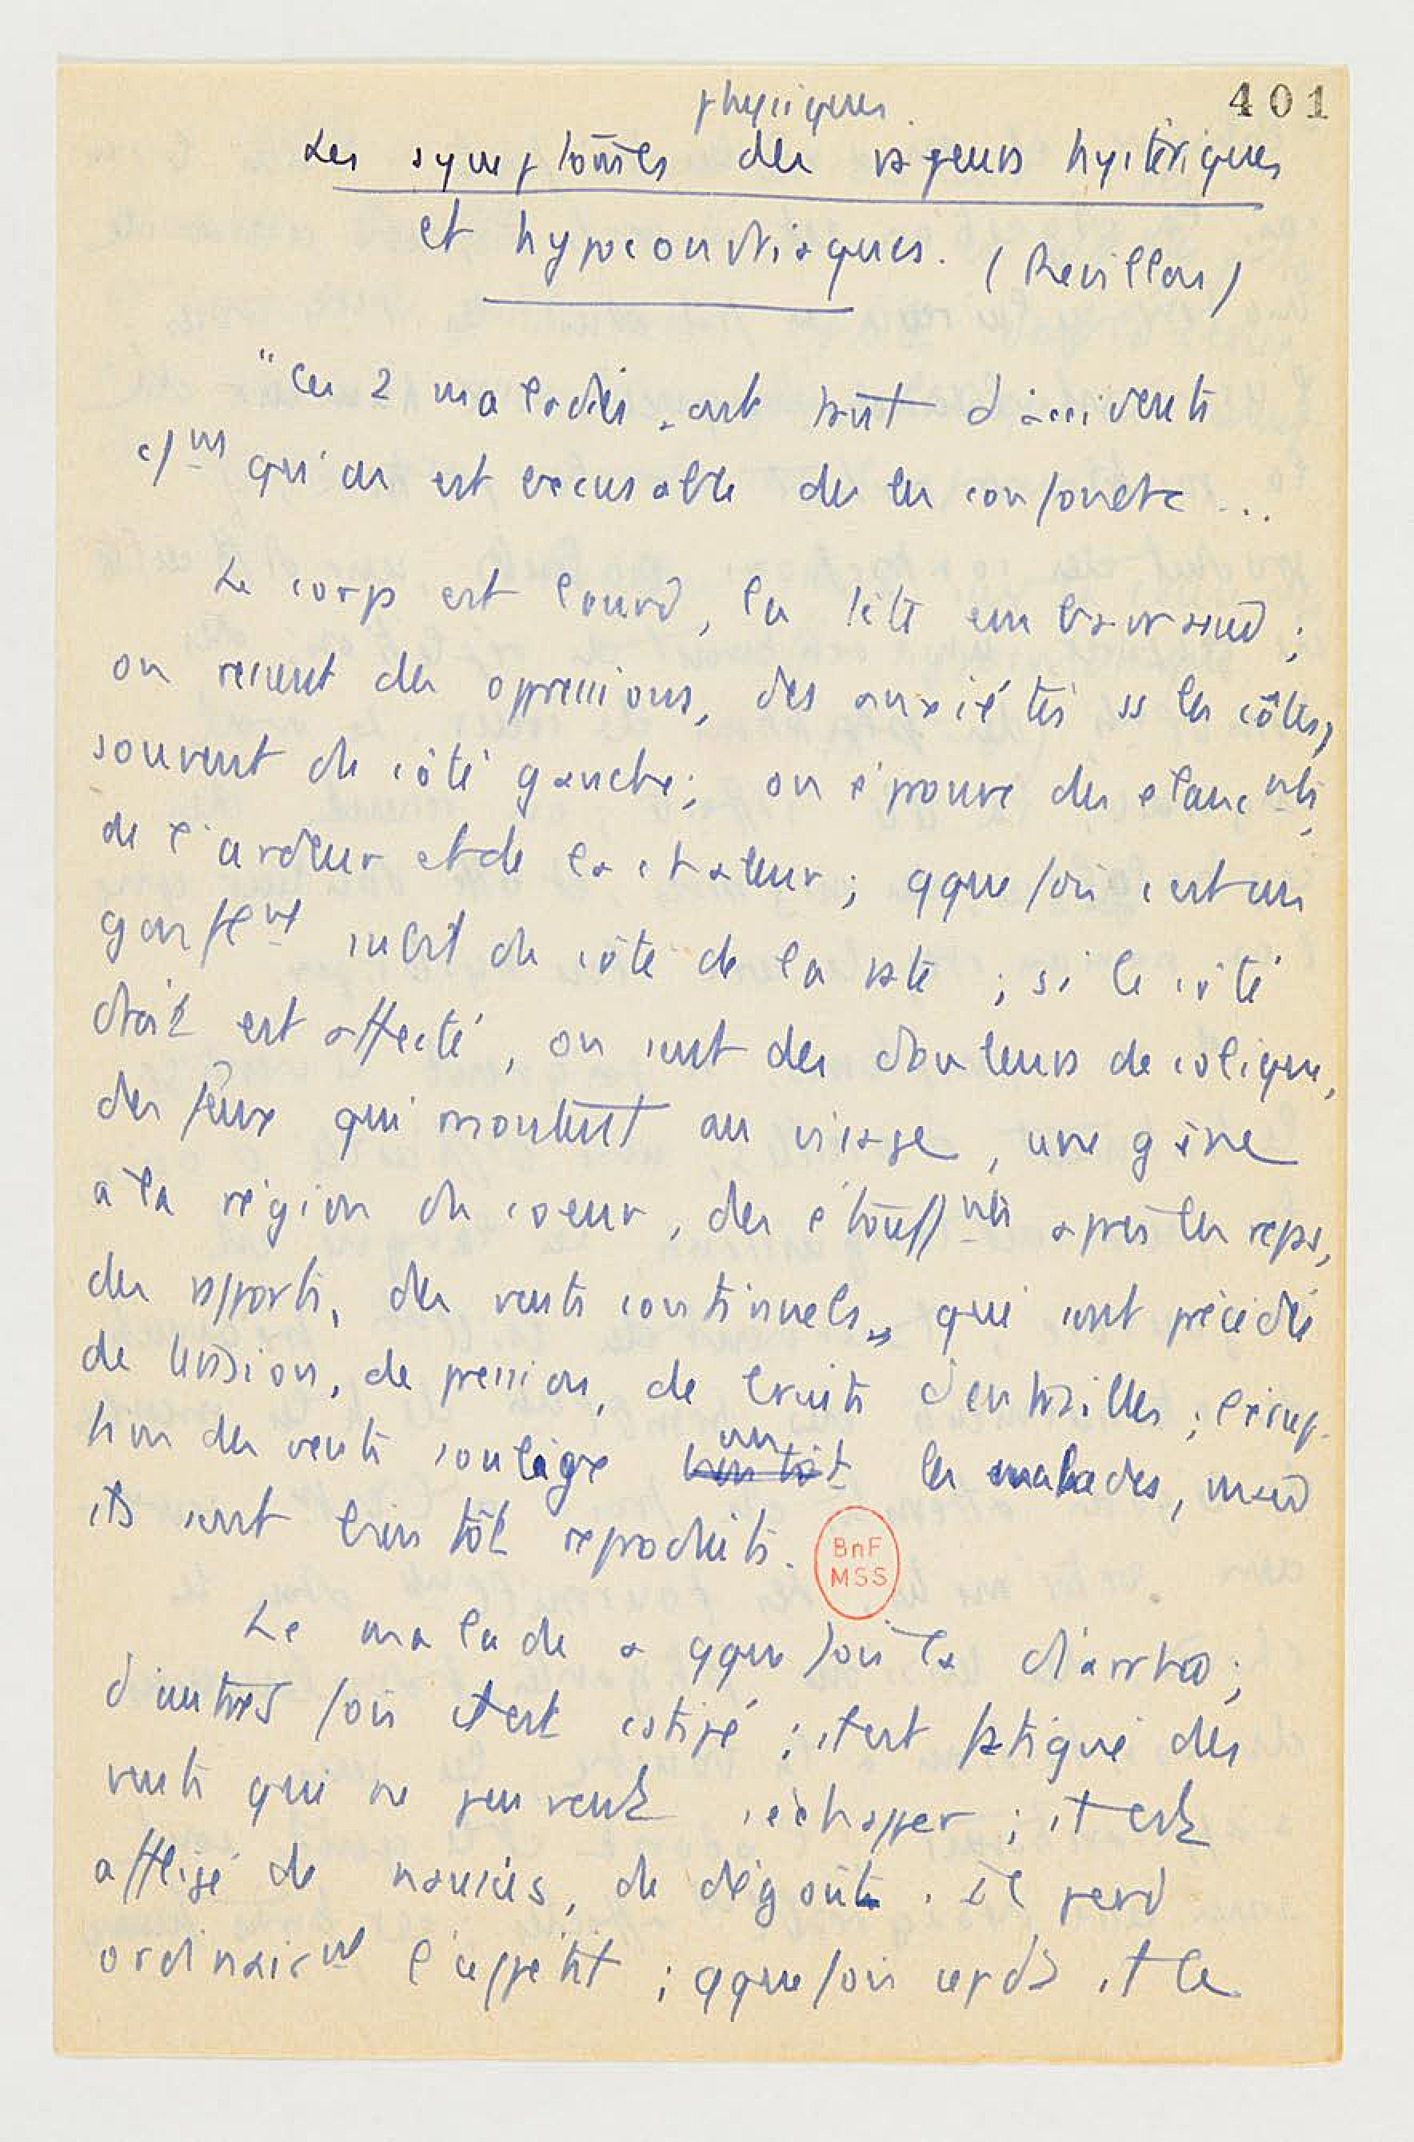 401
physiques.
Les symptômes des vapeurs hystériques
et hypocondriaques. (Revillon)
"Ces 2 maladies ont tant d'accidents
c/ns qu'on est excusable de les confondre...
Le corps est lourd, la tête embarrassée ;
on ressent des opressions, des anxiétés ss les côtes,
souvent du côté gauche ; on éprouve des elancmts,
de l'ardeur et de la chaleur ; qquefois c'est un
gonflemt subit du côté de la rate ; si le côté
droit est affecté, on sent des douleurs de colique,
des feux qui montent au visage, une gêne
à la région du coeur, des étouffmts après les reps,
des rapports, des vents continuels, qui sont précédés
de tension, de pression, de bruits d'entrailles ; l'érup-
tion des vents soulage un t les malades, mais
ils sont bientôt reproduits.
BnF
MSS
Le malade a qquefois la diarrhée ;
d'autres fois il est constipé ; il est fatigué des
vents qui ne peuvent s'échapper ; il est
affligé de nausées, de dégoût. Il perd
ordinairemt l'appétit ; qquefois cepdt il le